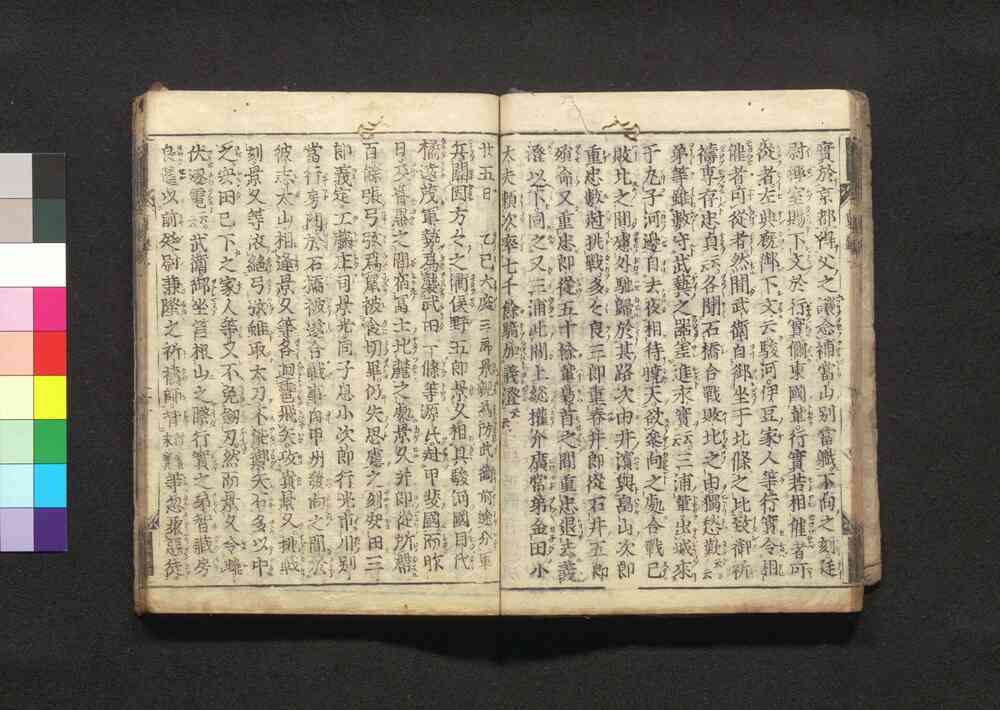 實於京都得父之讓令補當山別當職下向之刻廷
尉禪室賜下文於行實偁東國輩行實若相催者可
從者左典廐御下文云駿河伊豆家人等行實令相
催者可從者然間武衛自御坐于北條之比致御祈
禱專存忠貞云云聞石橋合戰敗北之由獨愁歎云云
弟等雖數守武藝之器差進永實云云三浦輩出城來
于丸子河邊自去夜相待曉天欲參向之處合戰已
敗北之間慮外馳歸於其路次由井濱與畠山次郎
重忠數尅挑戰多多良三郎重春并郎從石井五郎
殞命又重忠郎從五十餘輩梟首之間重忠退去義
澄以下向之又三浦此間上総權介廣常弟金田小
大夫頼次率七千餘騎加義澄云云
廿五日 乙巳大庭三郎景親為防武衛前途分軍
兵關固方方之衢俣野五郎景久相具駿河國目代
橘遠茂軍勢為襲武田一條等源氏赴甲斐國而昨
日及昏黑之間宿冨士北麓之處景久并郎從所帶
百餘張弓弦為鼠被食切畢仍失思慮之刻安田三
郎義定工藤庄司景光同子息小次郎行光市川別
當行房聞於石橋被遂合戰事自甲州發向之間於
彼志太山相逢景久等各廻轡飛矢攻責景久挑戰
刻景久等依絶弓弦雖取太刀不能禦矢石多以中
之安田已下之家人等又不免劔刃然而景久令雌
伏逐電云云武衛御坐筥根山之際行實之弟智藏房
良暹以前廷尉兼隆之祈禱師